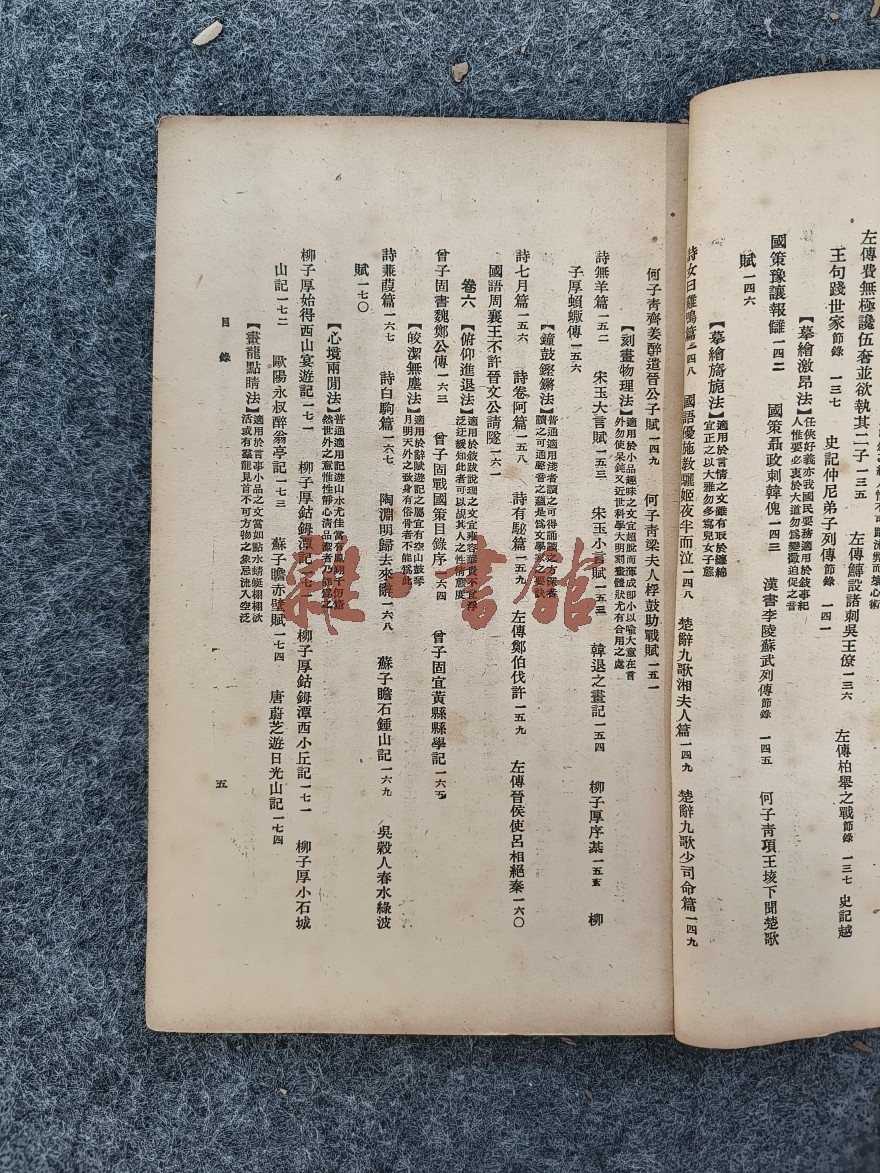 王句踐世家節錄 一三七 史記仲尼弟子列傳節錄 一四一
【摹繪激昂法】任俠好義亦我國民要務適用於敍事紀
人惟要必衷於大道勿爲變徵迫促之言
國策豫讓報讎一四二 國策聶政刺韓傀一四三 漢書李陵蘇武列傳節錄 一四五 何子青項王垓下聞楚歌
賦一四六
【摹繪旖旎法】適用於言情之文雖有取於纏綿
宜正之以大雅勿多寫兒女子態
詩女曰雞鳴篇一四八 國語優施教驪姬夜半而泣一四八 楚辭九歌湘夫人篇一四九 楚辭九歌少司命篇一四九
何子青齊姜醉遣晉公子賦一四九 何子青梁夫人桴鼓助戰賦一五一
【刻畫物理法】適用於小品趣味之文宜超脫而渾成卽小以喻大意在言
外勿使呆鈍又近世科學大明刻畫體狀尤有合用之處
詩無羊篇一五二 宋玉大言賦一五三 宋玉小言賦一五三 韓退之畫記一五四 柳子厚序棊一五五 柳
子厚蝜蝂傳一五六
【鐘鼓鏗鏘法】普通適用讀者讀之可得誦讀之方深者
讀之可通聲音之蘊是爲文學家之要訣
詩七月篇一五六 詩卷阿篇一五八 詩有駜篇一五九 左傳鄭伯伐許一五九 左傳晉侯使呂相絕秦一六〇
國語周襄王不許晉文公請隧一六一
卷六
【俯仰進退法】適用於敍跋說理之文宜雍容華貴不宜浮
泛迂緩知此者可以覘其人之性情態度
曾子固書魏鄭公傳一六三 曾子固戰國策目錄序一六四 曾子固宜黃縣縣學記一六五
【皎潔無塵法】適用於辭賦遊記之屬宜有空山鼓琴
月明天外之致身有俗骨者不能爲此
詩蒹葭篇一六七 詩白駒篇一六七 陶淵明歸去來辭一六八 蘇子瞻石鍾山記一六九 吳榖人春水綠波
賦一七〇
【心境兩閒法】普通適用記遊山水尤佳當有鳳翔千仞
然世外之意惟性靜心清品潔者乃能爲之
柳子厚始得西山宴遊記一七一 柳子厚鈷鉧潭記一七一 柳子厚鈷鉧潭西小丘記一七一 柳子厚小石城
山記一七二 歐陽永叔醉翁亭記一七三 蘇子瞻赤壁賦一七四 唐蔚芝遊日光山記一七四
【畫龍點睛法】適用於言事小品之文當如點水蜻蜓栩栩欲
活或有羣龍見首不可方物之象忌流入空泛
目錄
五
雜一書館